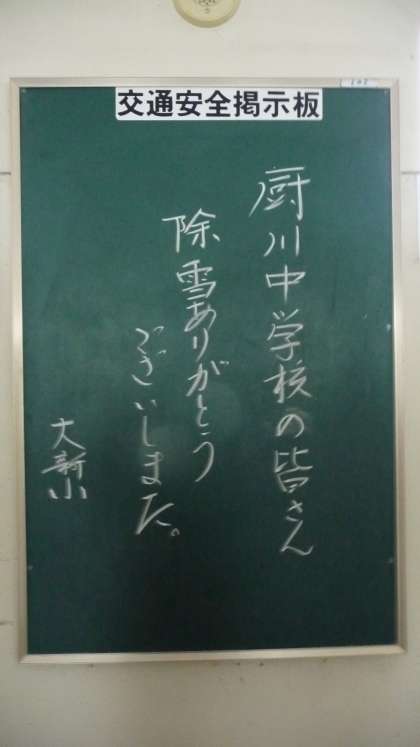 交通安全掲示板
厨川中学校の皆さん
除雪ありがとう
ございしました。
大新小